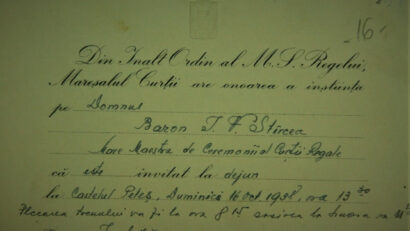 16
Din Inalt Ordin al M.S. Regelui,
Mareșalul Curții are onoarea a înștiința
pe Domnul
Baron I. V. Stîrcea
Mare Maestru de Ceremonii al Curții Regale
că este invitat la dejun
la Castelul Peleș, Duminică 16 Oct. 1938, ora 13 30
Plecarea trenului va fi la ora 8 15 sosirea la